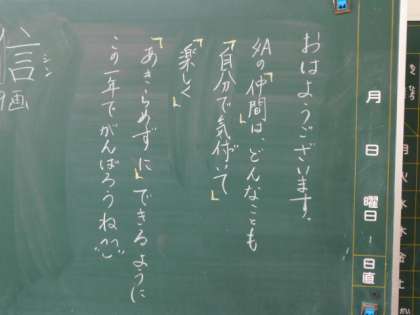 おはようございます。
5Aの「仲間」は、どんなことも
「自分で気付いて」
「楽しく」
「あきらめずに」できるように
この一年でがんばろうね^^
信
シン
9画
月
日
曜日
日直